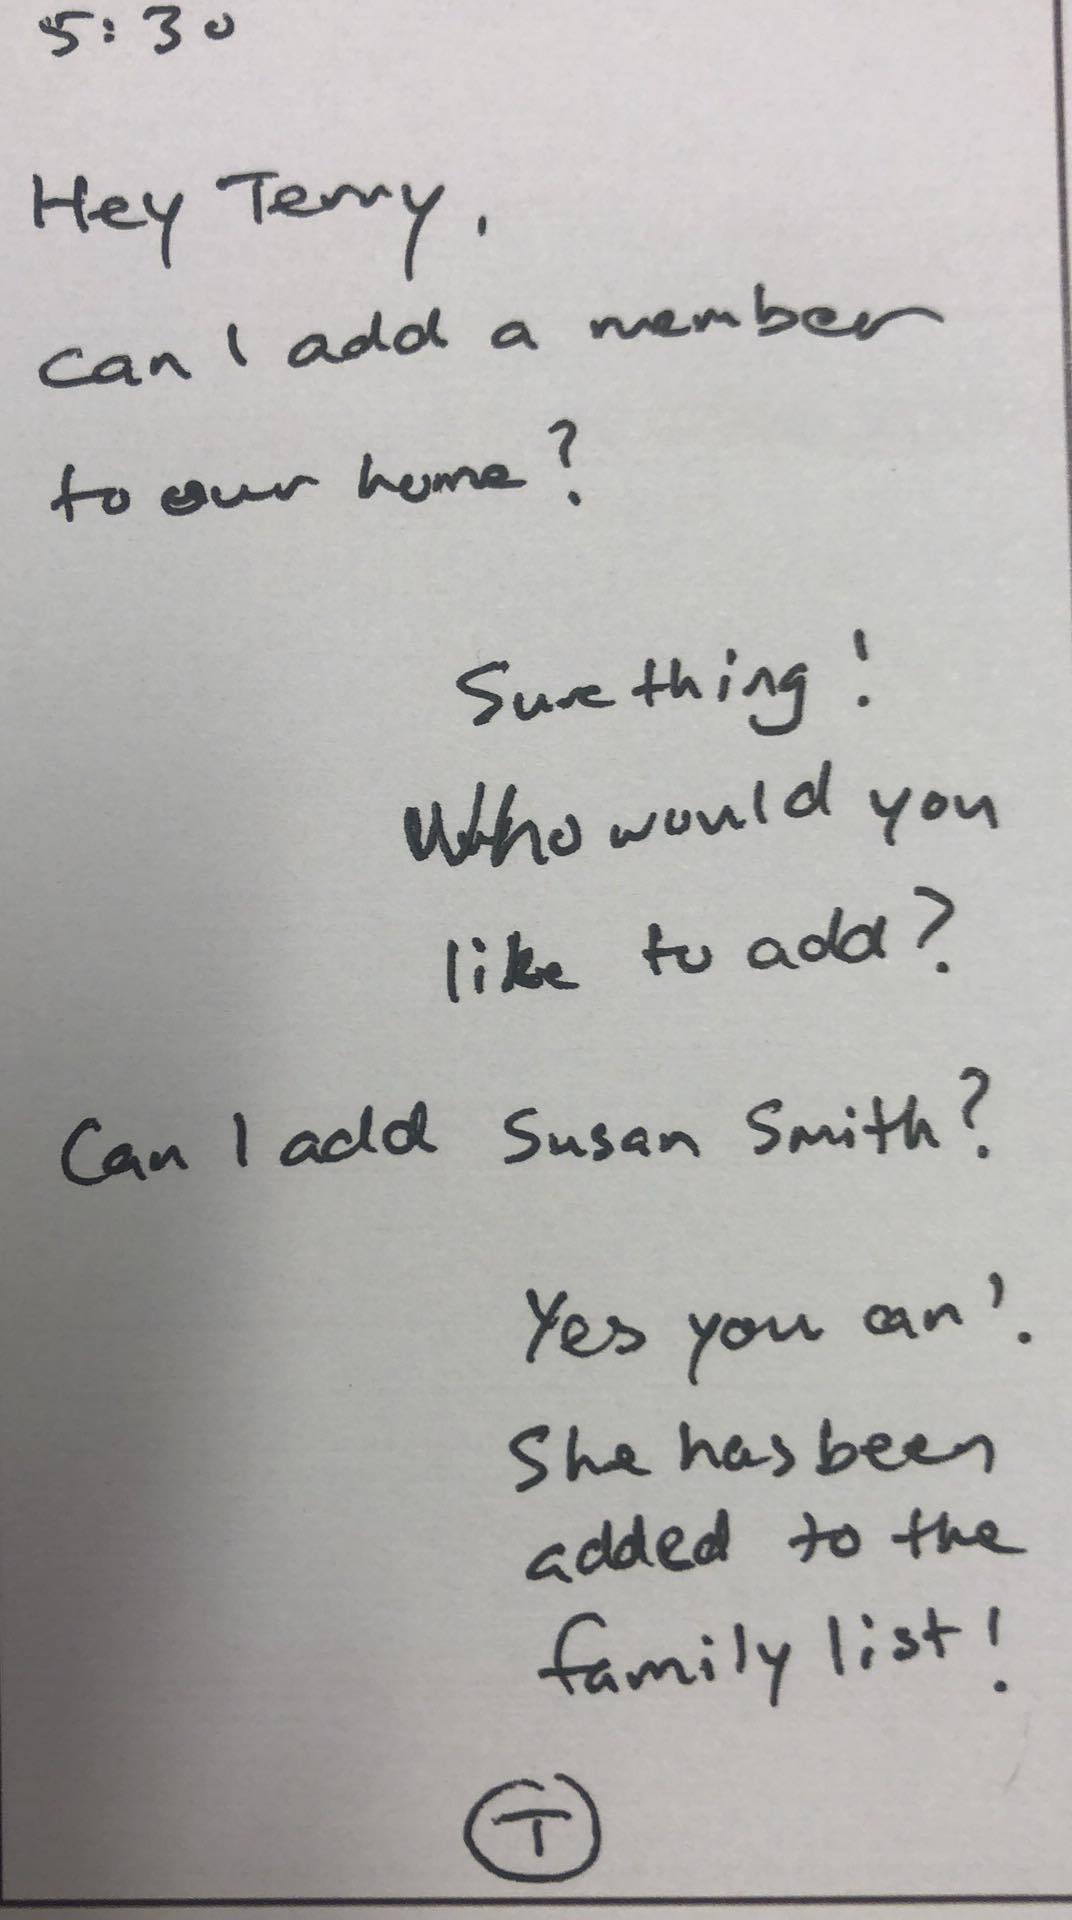 5:30
Hey Terry,
can I add a member
to our home?
Sure thing!
Who would you
like to add?
Can I add Susan Smith?
Yes you can!
She has been
added to the
family list!
T